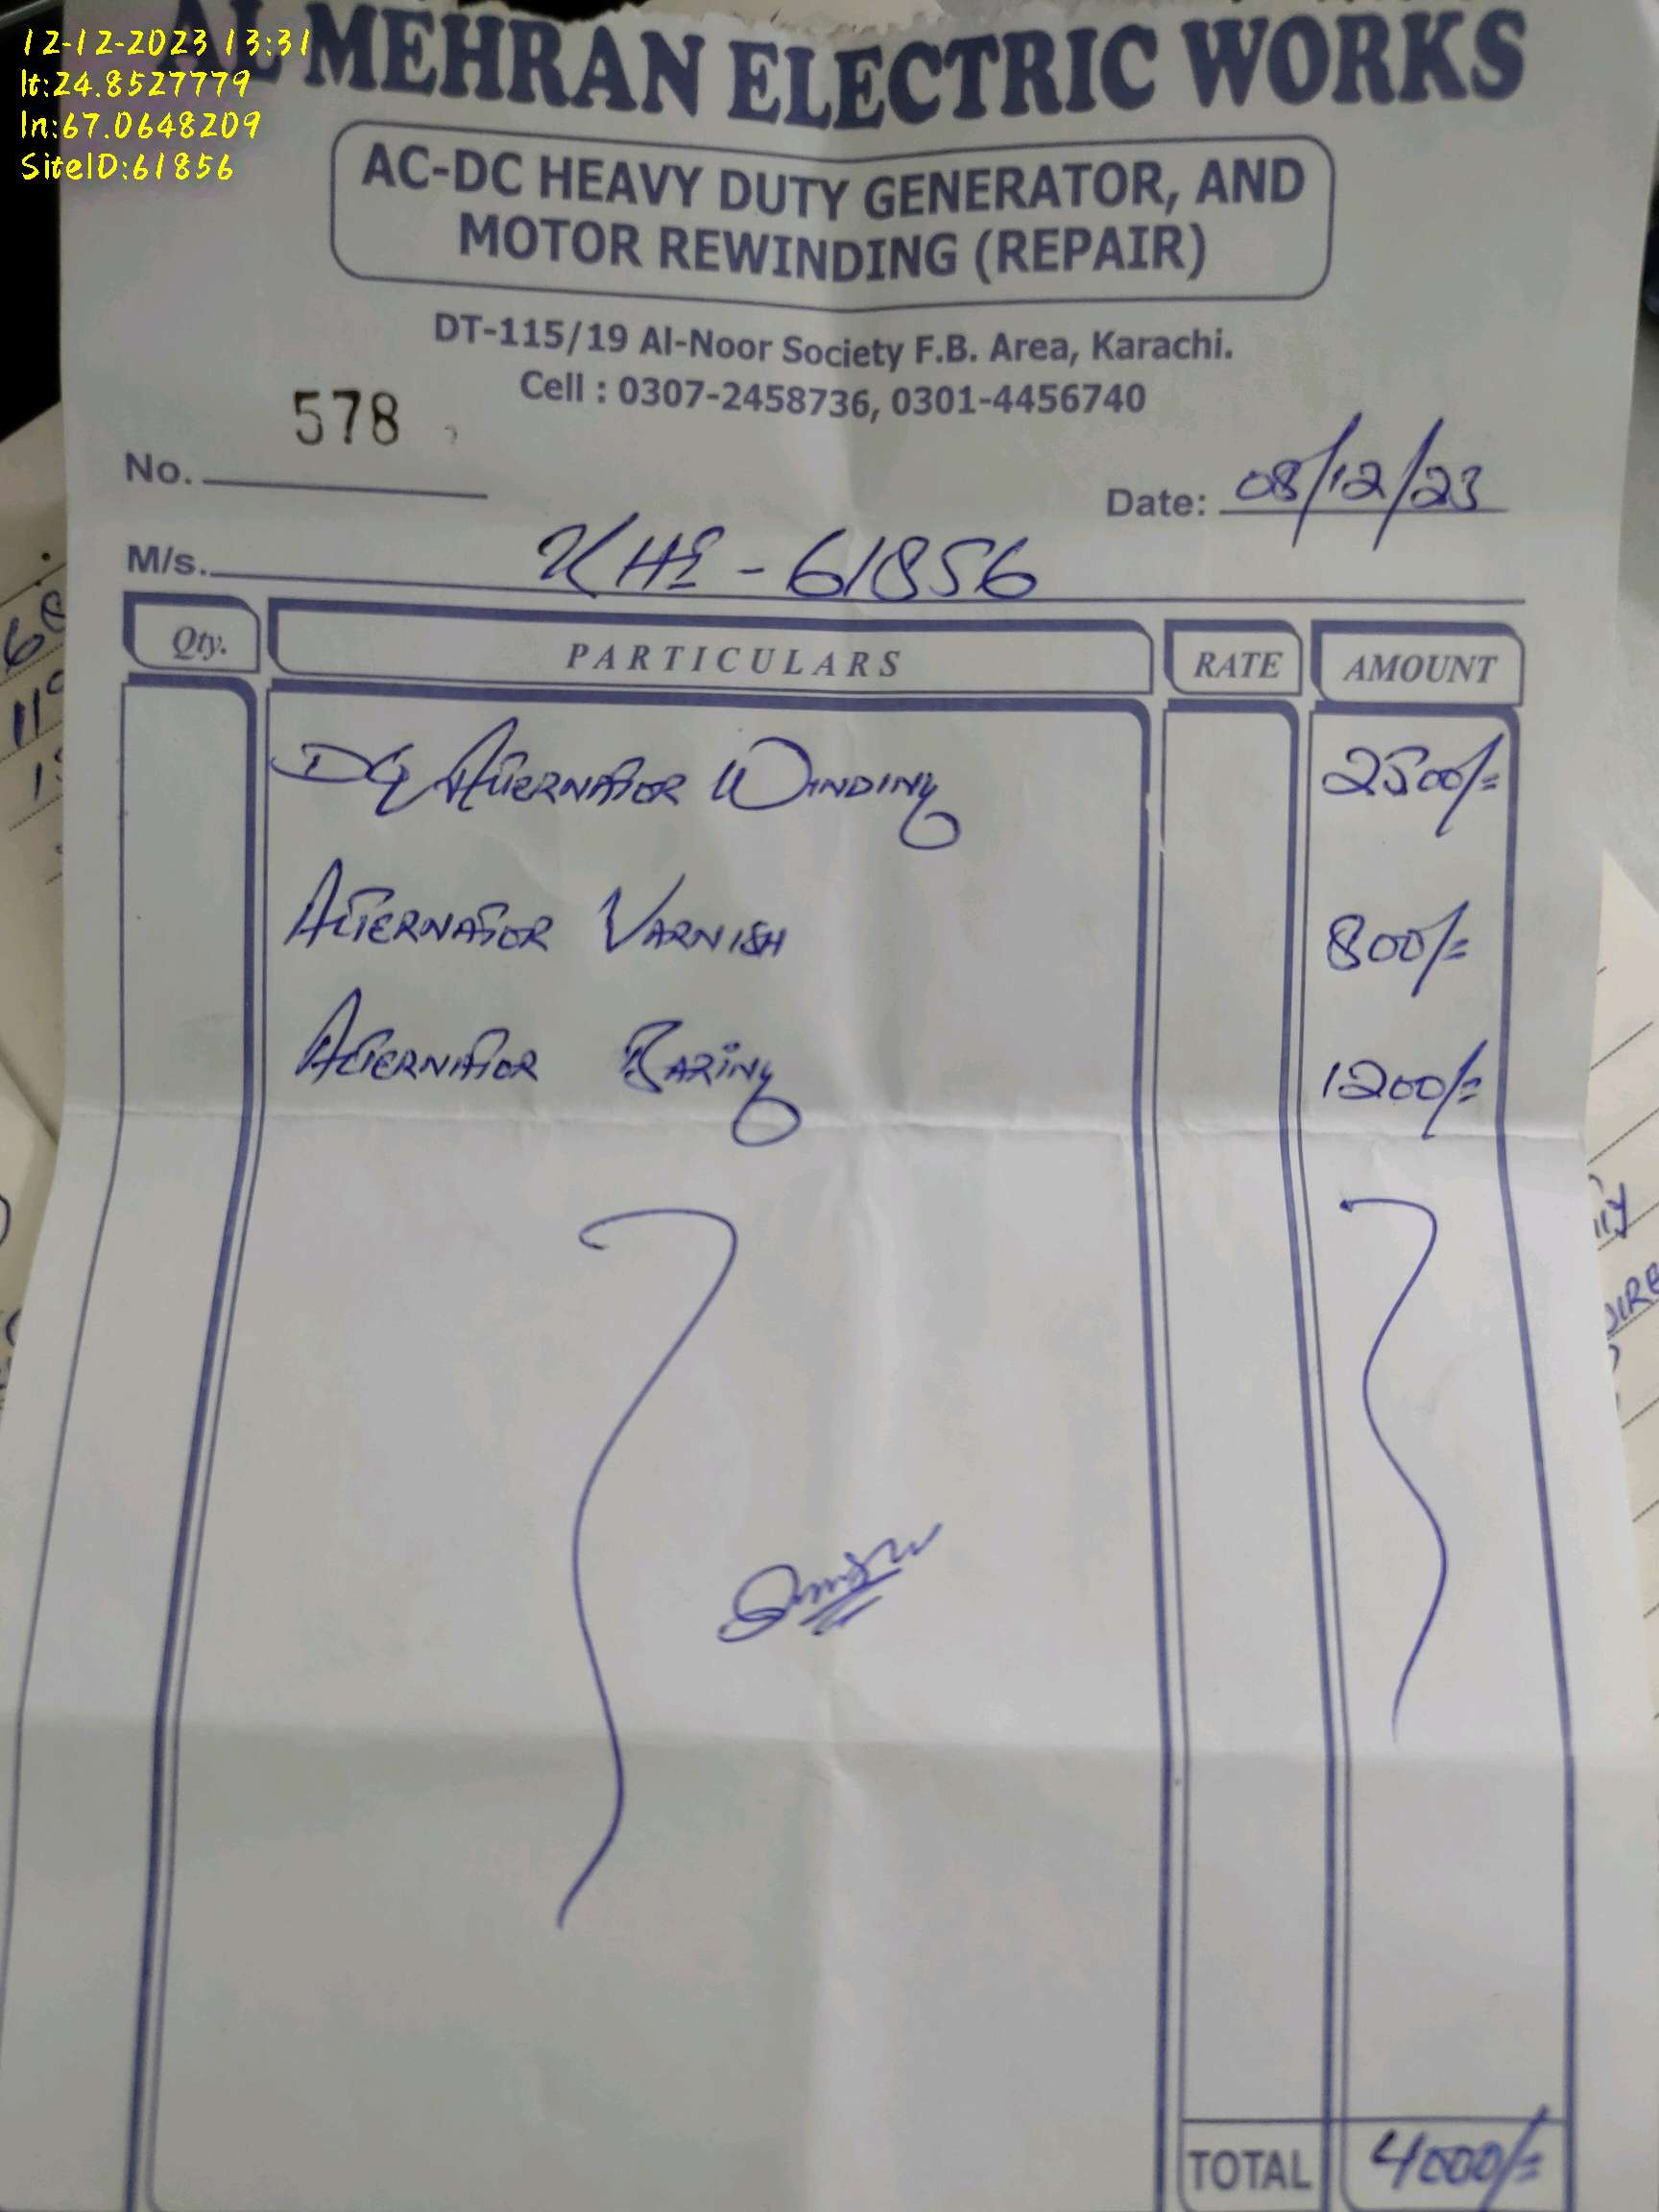 12-12-2023 13:31
lt:24.8527779
ln:67.0648209
SiteID:61856
AL MEHRAN ELECTRIC WORKS
AC-DC HEAVY DUTY GENERATOR, AND
MOTOR REWINDING (REPAIR)
DT-115/19 Al-Noor Society F.B. Area, Karachi.
Cell : 0307-2458736, 0301-4456740
No. 578
Date: 08/12/23
M/s. KHI - 61856
Qty. PARTICULARS RATE AMOUNT
DG ALTERNATOR WINDING 2500/=
ALTERNATOR VARNISH 800/=
ALTERNATOR BARING 1200/=
TOTAL 4000/=